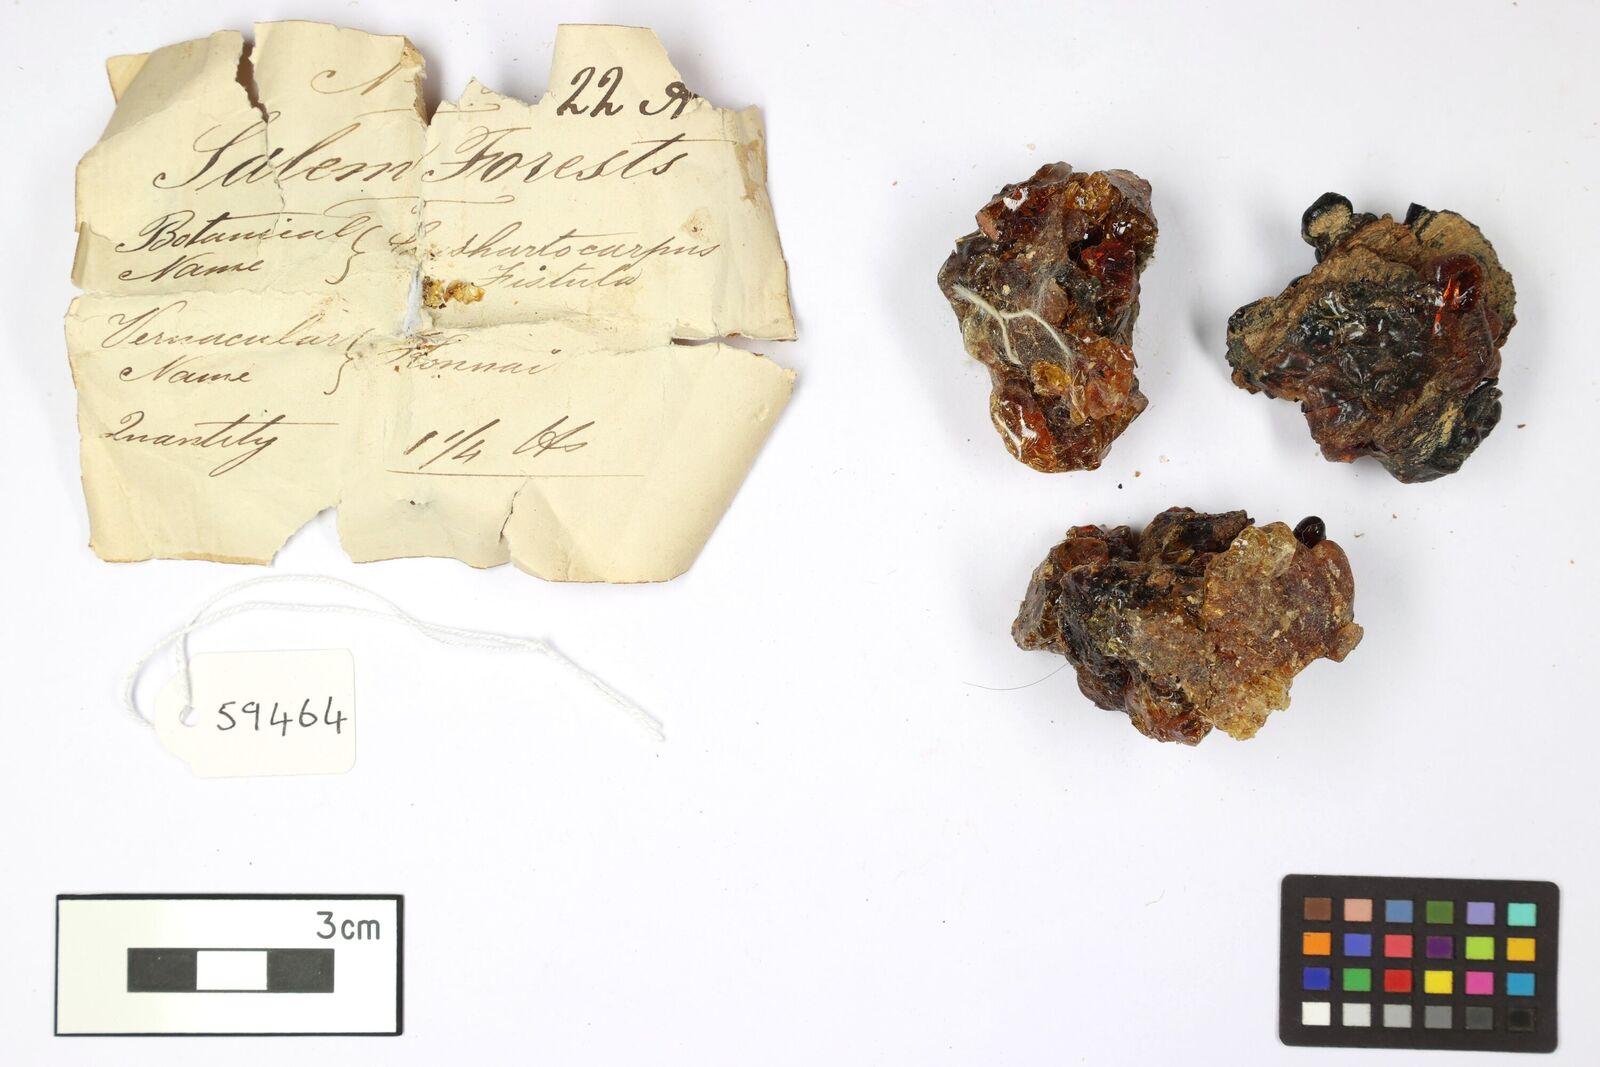 22 A
Salem Forests
Botanical
Name
thartocarpus
Fistula
Vernacular
Name
Konnai
Quantity
1 1/4 lbs
59464
3cm